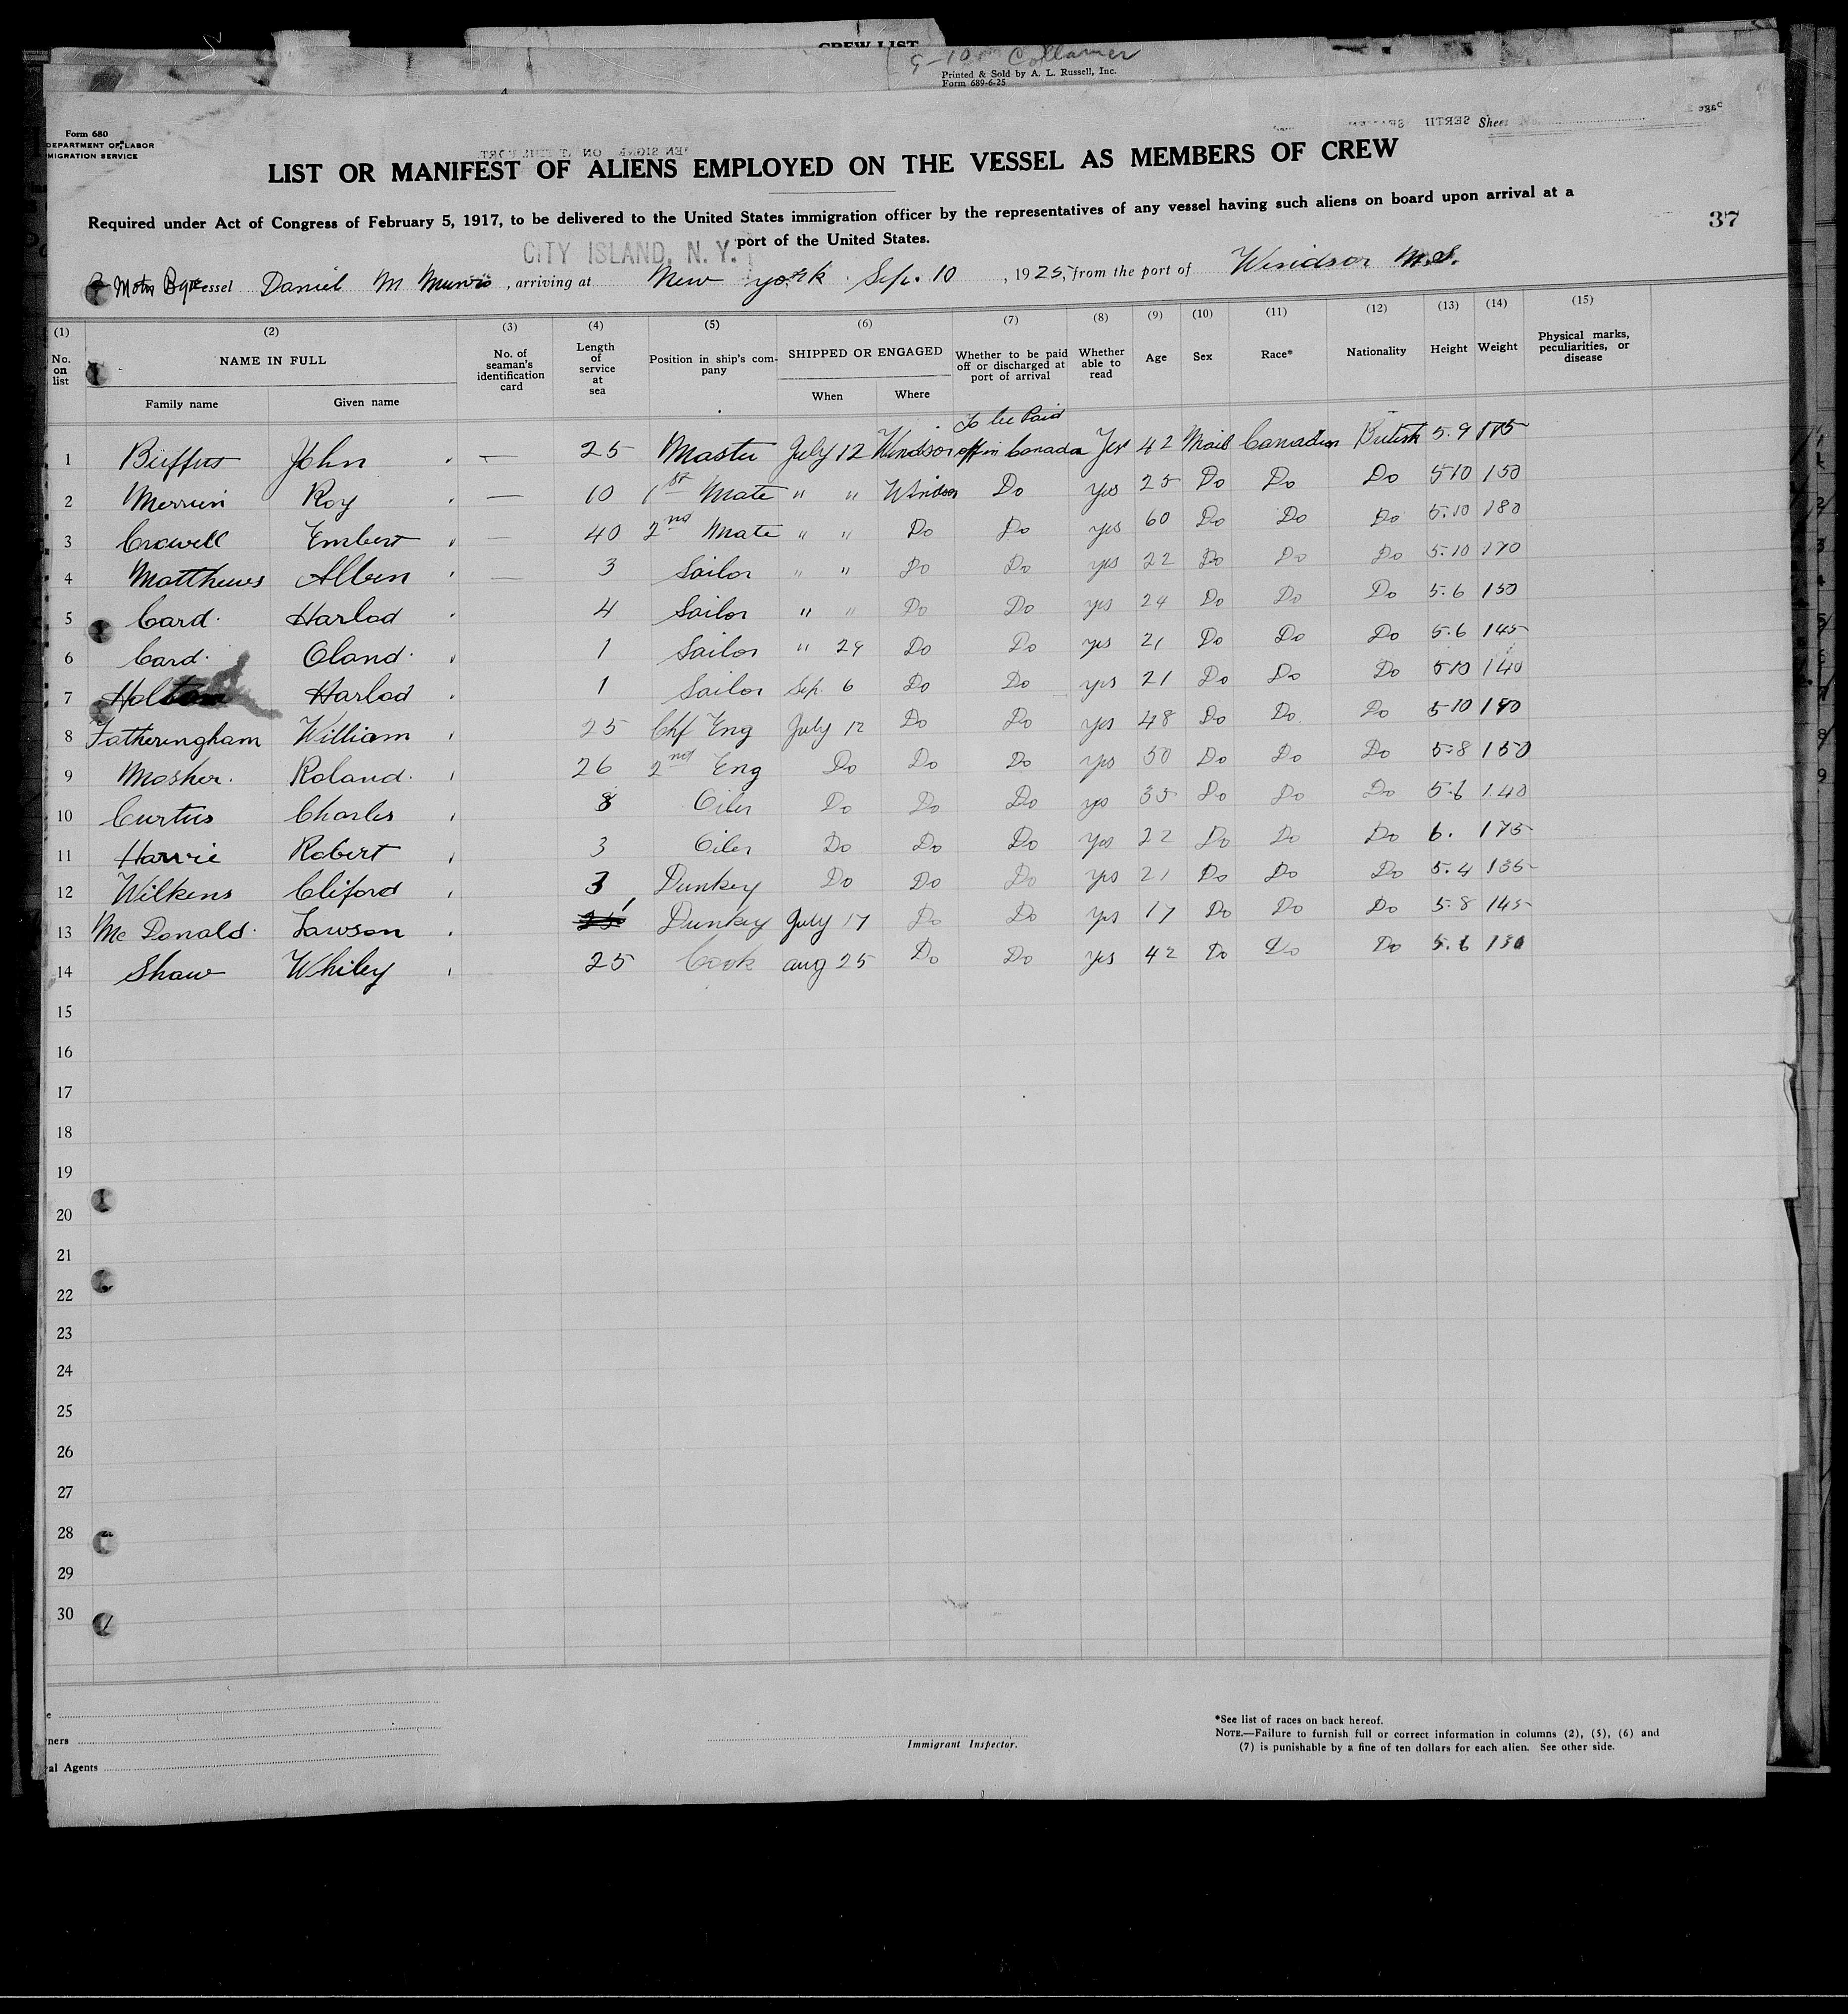 CREW LIST
9-10 Collamer
Printed & Sold by A. L. Russell, Inc.
Form 689-6-25
Form 680
DEPARTMENT OF LABOR
MIGRATION SERVICE
Sheet No.
LIST OR MANIFEST OF ALIENS EMPLOYED ON THE VESSEL AS MEMBERS OF CREW
Required under Act of Congress of February 5, 1917, to be delivered to the United States immigration officer by the representatives of any vessel having such aliens on board upon arrival at a
port of the United States.
37
CITY ISLAND, N. Y.
Vessel Daniel M Munro, arriving at New York Sep. 10, 1925, from the port of Windsor N.S.
(1) (2) (3) (4) (5) (6) (7) (8) (9) (10) (11) (12) (13) (14) (15)
No. on list NAME IN FULL No. of seaman's identification card Length of service at sea Position in ship's company SHIPPED OR ENGAGED Whether to be paid off or discharged at port of arrival Whether able to read Age Sex Race* Nationality Height Weight Physical marks, peculiarities, or disease
Family name Given name When Where
To be Paid
1 Buffus John — 25 Master July 12 Windsor off in Canada Yes 42 Male Canadian British 5.9 175
2 Merriin Roy — 10 1st Mate " " Windsor Do yes 25 Do Do Do 5 10 150
3 Crowell Embert — 40 2nd Mate " " Do Do yes 60 Do Do Do 5.10 180
4 Matthews Allen — 3 Sailor " " Do Do yes 22 Do Do Do 5.10 170
5 Card. Harlod 4 Sailor " " Do Do yes 24 Do Do Do 5.6 150
6 Card. Oland. 1 Sailor " 29 Do Do yes 21 Do Do Do 5.6 145
7 Harlod 1 Sailor Sep. 6 Do Do yes 21 Do Do Do 5 10 140
8 Fatheringham William 25 Chf Eng July 12 Do Do yes 48 Do Do Do 5 10 190
9 Mosher. Roland. 26 2nd Eng Do Do Do yes 50 Do Do Do 5.8 150
10 Curtus Charles 8 Oiler Do Do Do yes 35 Do Do Do 5.6 140
11 Harvie Robert 3 Oiler Do Do Do yes 22 Do Do Do 6. 175
12 Wilkens Cliford 3 Dunkey Do Do Do yes 21 Do Do Do 5.4 135
13 Mc Donald. Lawson 1 Dunkey July 17 Do Do yes 17 Do Do Do 5.8 145
14 Shaw Whiley 25 Cook aug 25 Do Do yes 42 Do Do Do 5.6 130
15
16
17
18
19
20
21
22
23
24
25
26
27
28
29
30
ners
al Agents
Immigrant Inspector.
*See list of races on back hereof.
NOTE.—Failure to furnish full or correct information in columns (2), (5), (6) and
(7) is punishable by a fine of ten dollars for each alien. See other side.